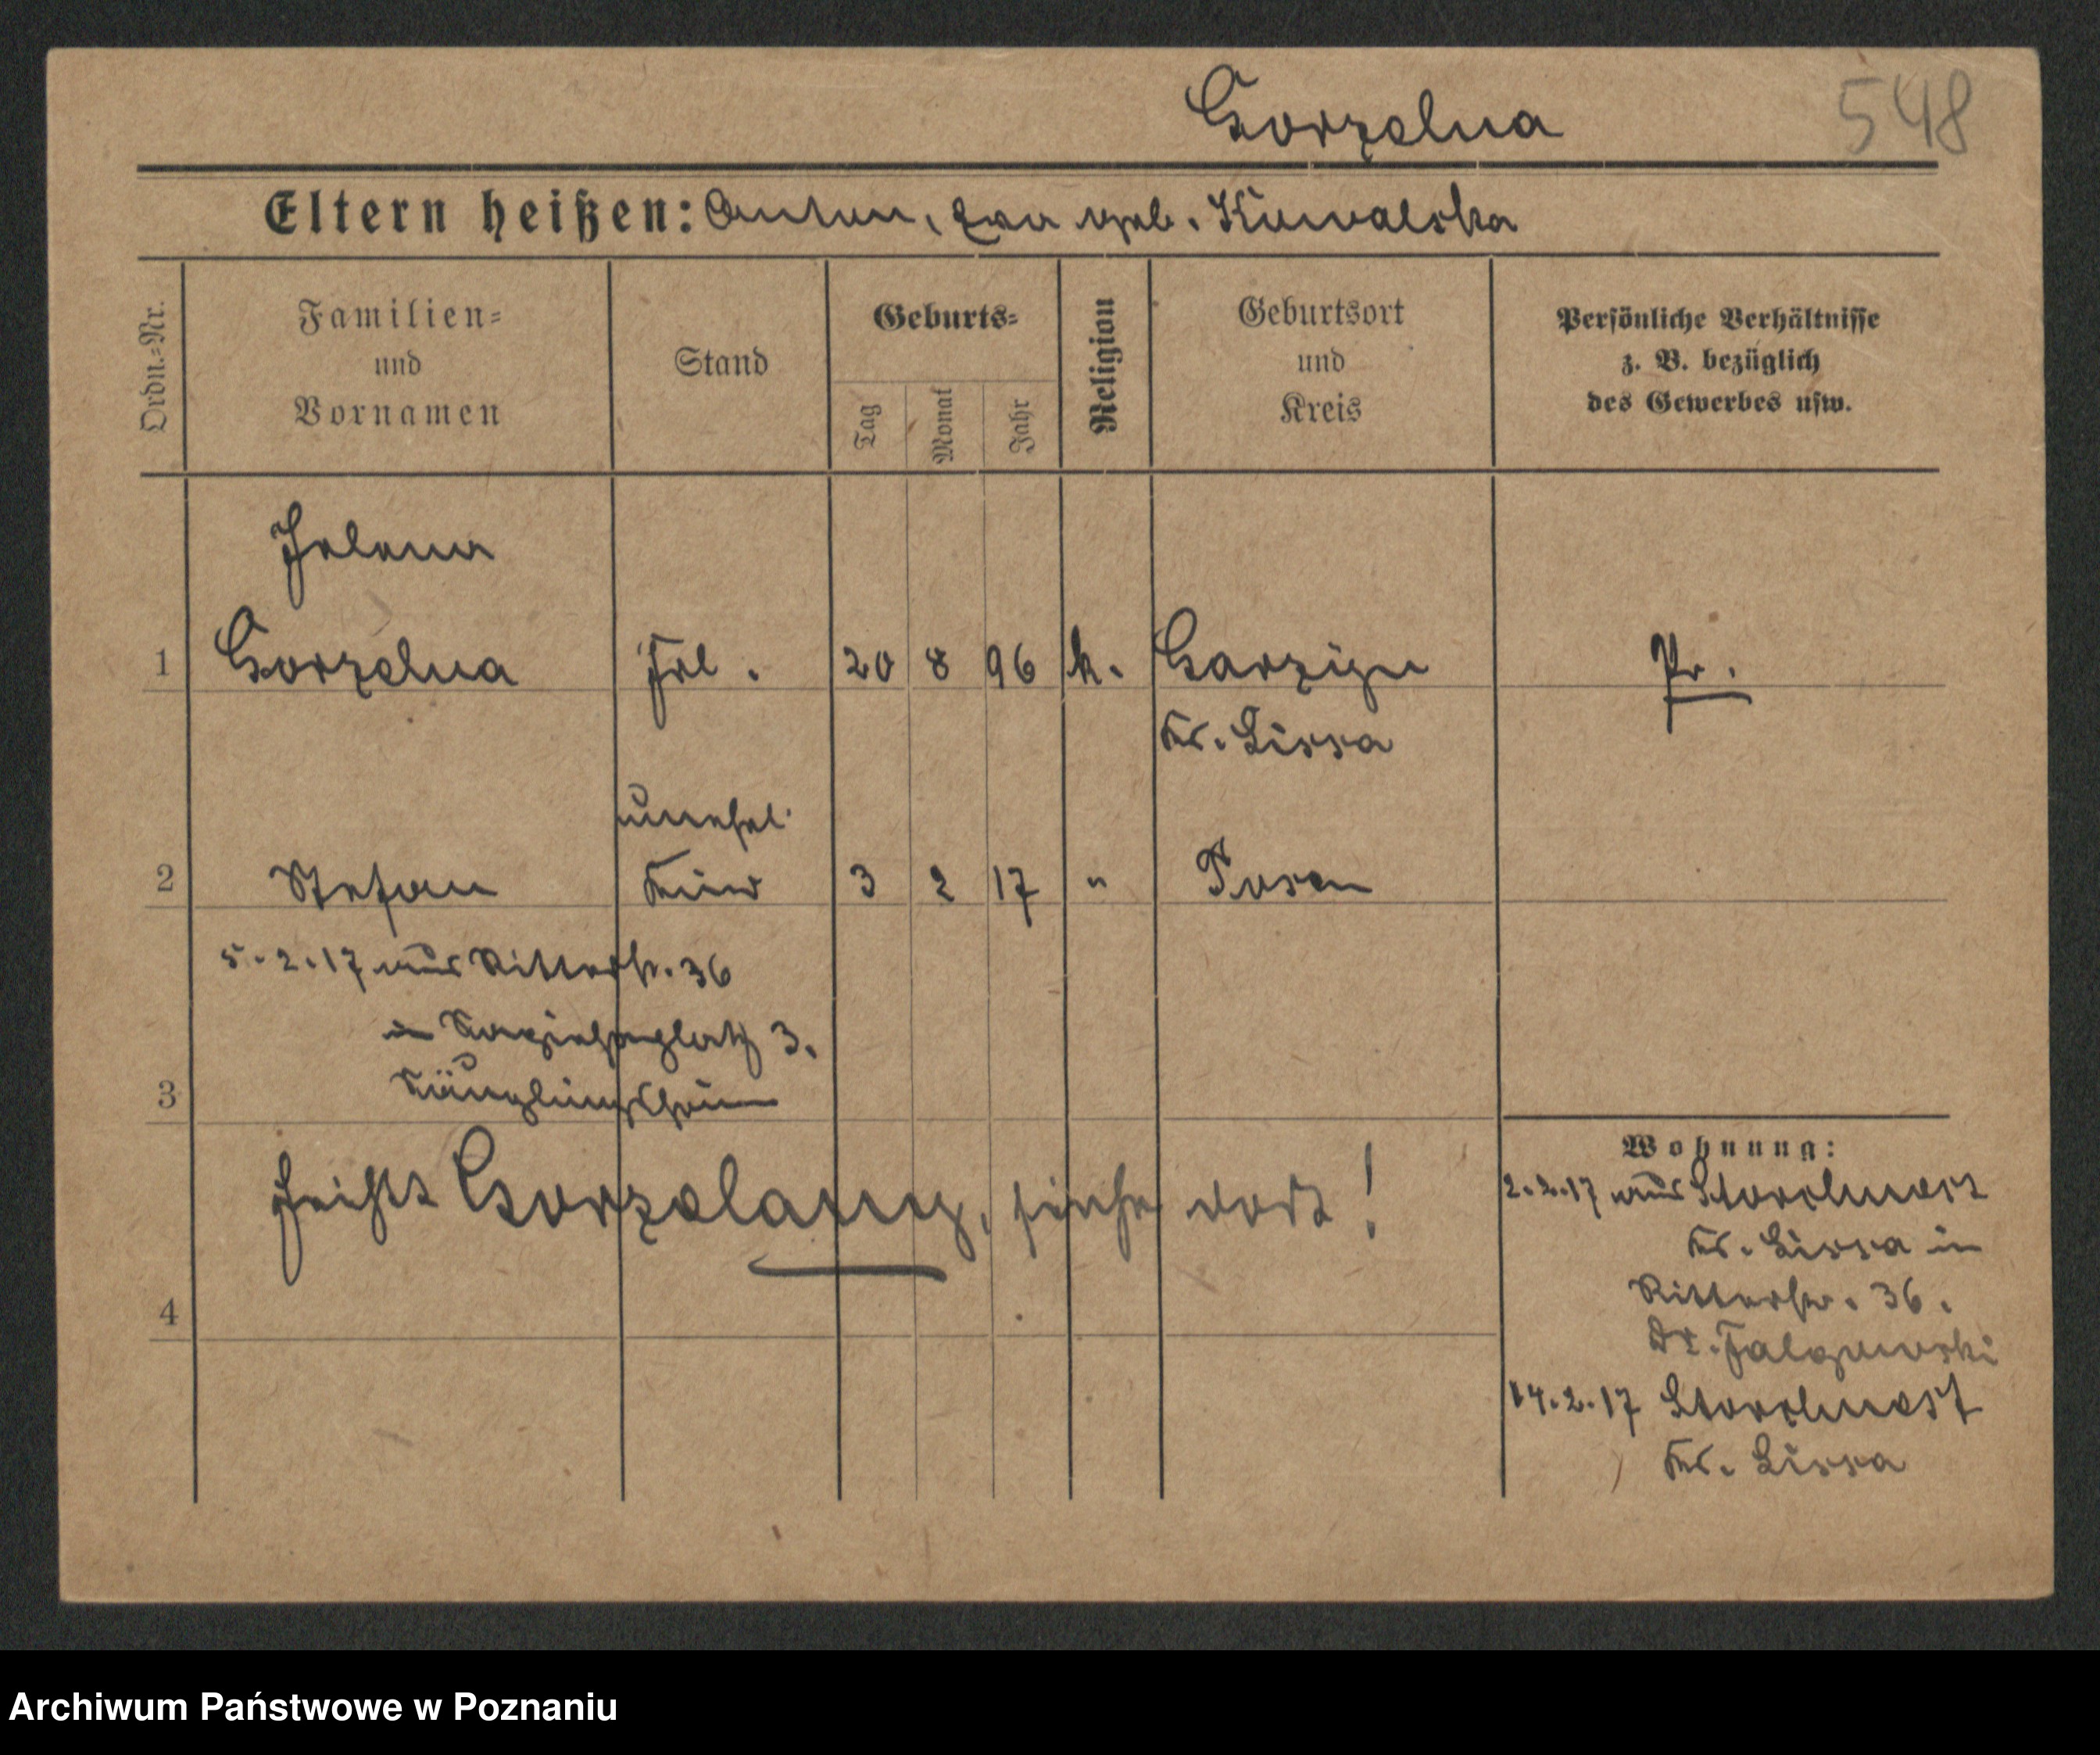 Gorzelna
548
Eltern heißen: Anton, Eva geb. Kowalska
Ordn.=Nr.
Familien=
und
Vornamen
Stand
Geburts=
Tag
Monat
Jahr
Religion
Geburtsort
und
Kreis
Persönliche Verhältnisse
z. B. bezüglich
des Gewerbes usw.
Helena
1 Gorzelna Frl. 20 8 96 k. Garzign Pr.
Kr. Lissa
unehel.
2 Stefan Kind 3 2 17 " Posen
5.2.17 aus Ritterstr. 36
in 3.
3 Säuglingsheim
heißt Gorzelanny, siehe dort!
4
Wohnung:
2.2.17 aus Storchnest
Kr. Lissa in
Ritterstr. 36.
Dr.
14.2.17 Storchnest
Kr. Lissa
Archiwum Państwowe w Poznaniu